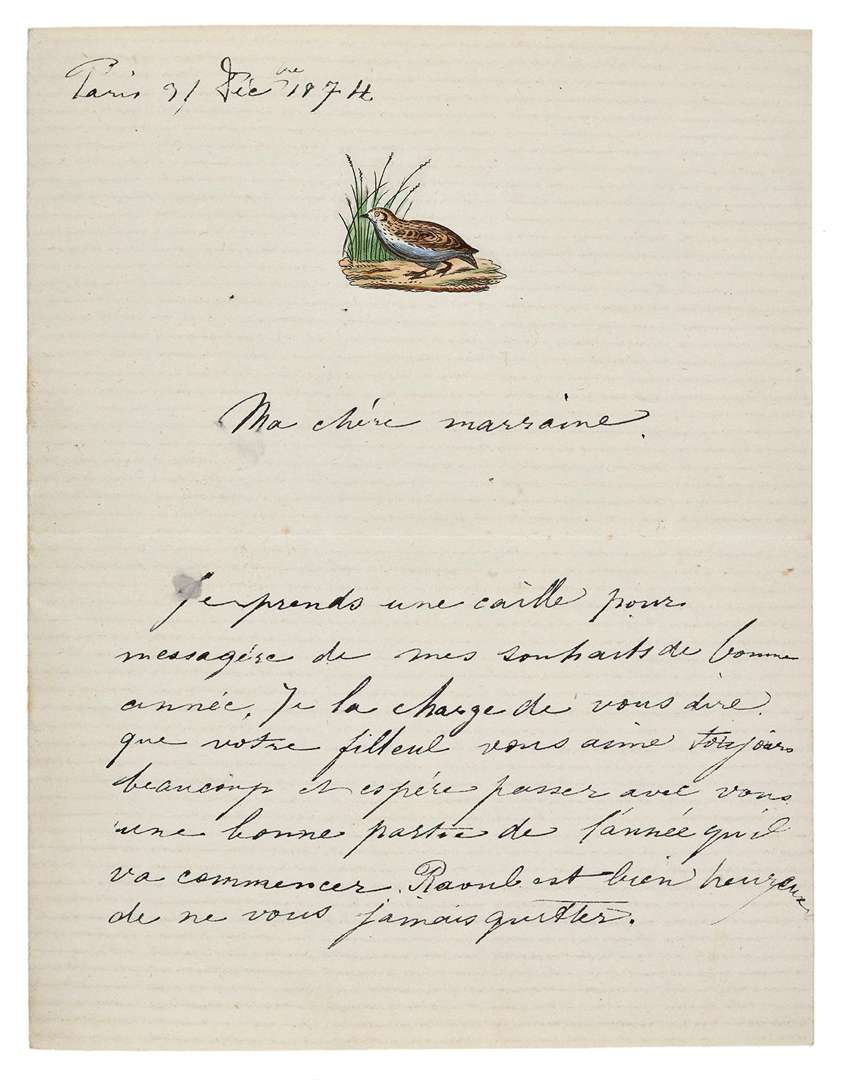 Paris 31 Déc^bre 1874
Ma chère marraine.
Je prends une caille pour
messagère de mes souhaits de bonne
année. Je la charge de vous dire
que votre filleul vous aime toujours
beaucoup et espère passer avec vous
une bonne partie de l'année qu'il
va commencer. Raoul est bien heureux
de ne vous jamais quitter.